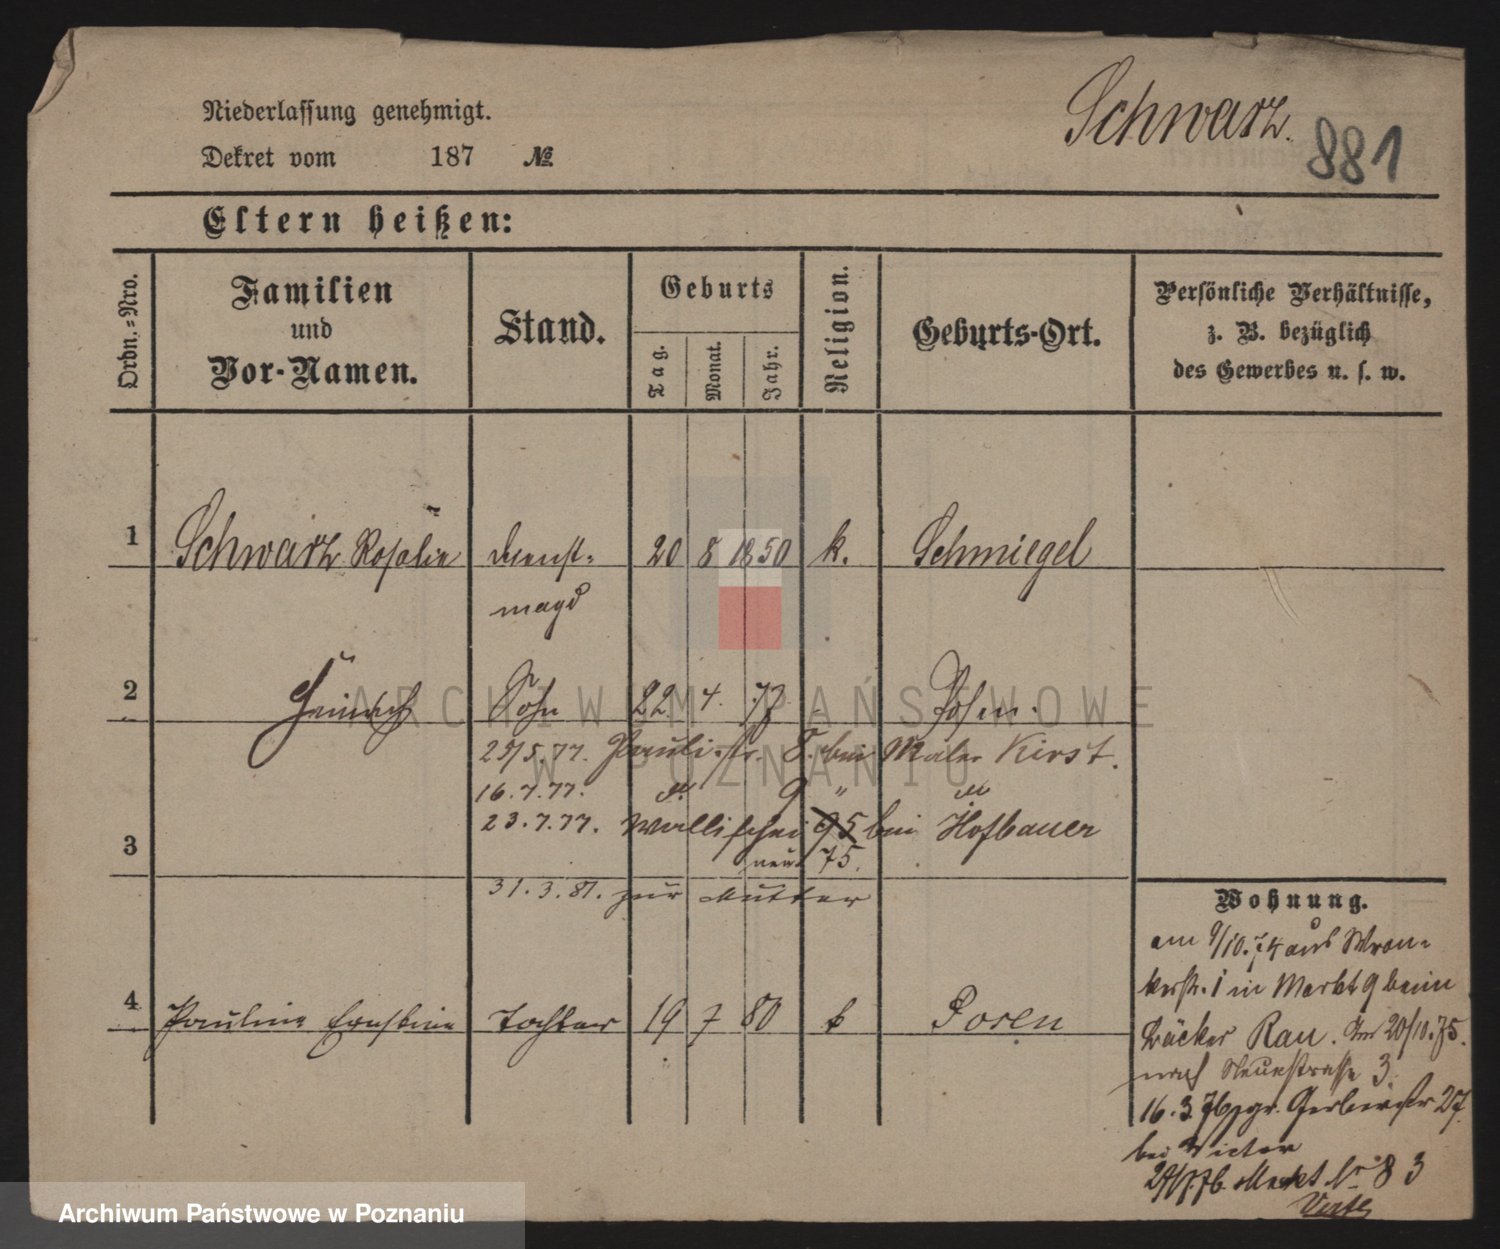 Schwarz.
881
Niederlassung genehmigt.
Dekret vom 187 №
Eltern heißen:
Ordn.-Nro.
Familien
und
Vor-Namen.
Stand.
Geburts
Tag.
Monat.
Jahr.
Religion.
Geburts-Ort.
Persönliche Verhältnisse,
z. B. bezüglich
des Gewerbes u. s. w.
1 Schwarz Rosalie Dienst- 20 8 1850 k. Schmiegel
magd
2 Heinrich Sohn 22 4. 77 Posen.
25/5.77. Paulistr. 8. bei Maler Kirst.
16.7.77. do. 9 " do
23.7.77. Wallischei 95 bei Hofbauer
3
neu 75.
31.3.81. zur Mutter
4 Pauline Ernstine Tochter 19 7 80 k Posen
Wohnung.
am 9/10.74 aus Wron-
kerstr. 1 in Markt 9 beim
Bäcker Rau. 20/10.75.
nach Neuestrasse 3.
16.3.76 Gerberstr 27
bei Victor
Markt No 83
ARCHIWUM PAŃSTWOWE
W POZNANIU
Archiwum Państwowe w Poznaniu